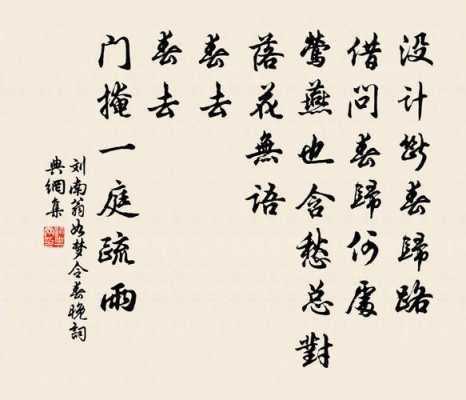 没计断春歸路
借问春歸何處
莺燕也含愁总對
落花無语
春去
春去
门掩一庭疏雨
刘南翁如梦令春晚词
典網集